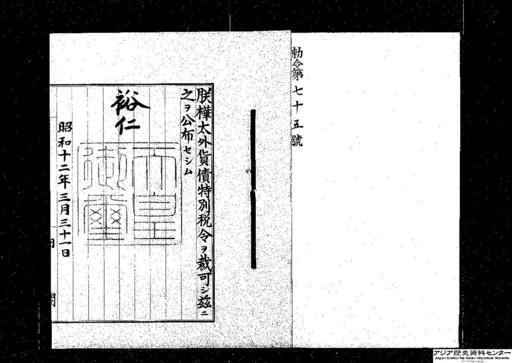 勅令第七十五號
朕樺太外貨債特別税令ヲ裁可シ茲ニ
之ヲ公布セシム
裕仁
天皇御璽
昭和十二年三月三十一日
アジア歴史資料センター
Japan Center for Asian Historical Records